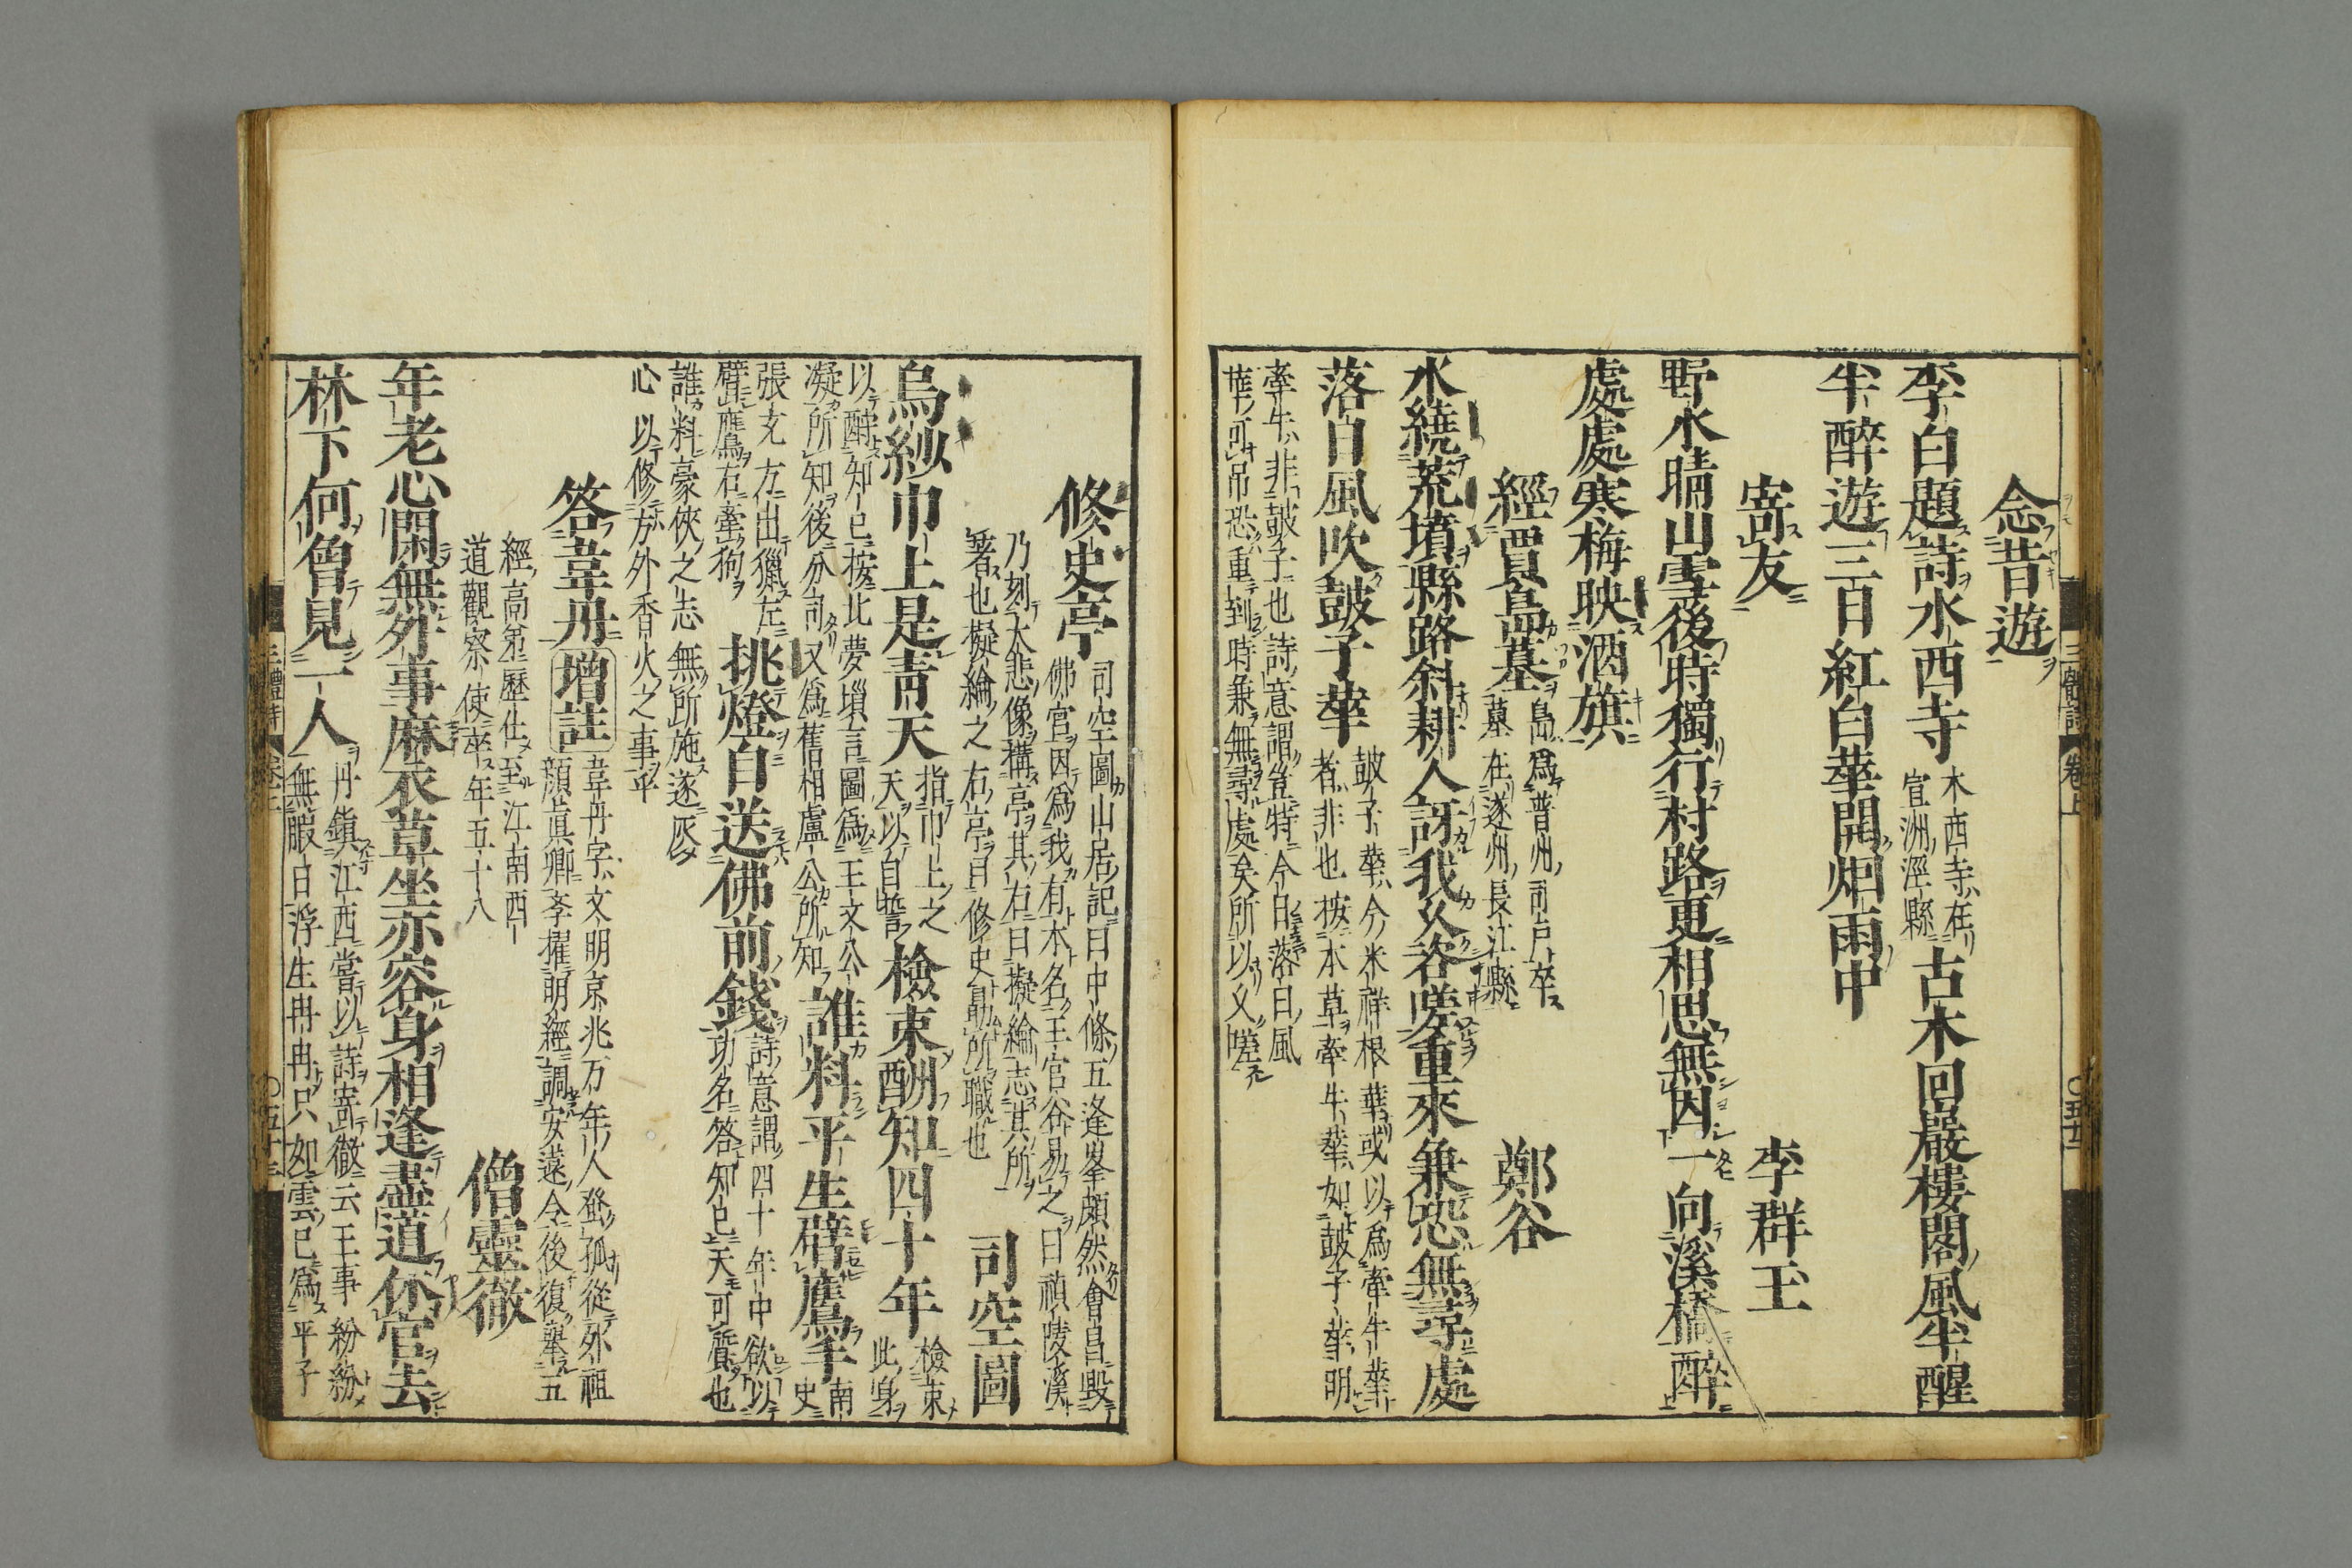 念昔遊
李白題詩水西寺
水西寺在
宣洲涇縣
古木回巖樓閣風半醒
半醉遊三百紅白華開烟雨中
寄友
李群玉
野水晴山雪後時獨行村路更相思無因一向溪橋醉
處處寒梅映酒旗
經賈島墓
島爲普州司戸卒
墓在遂州長江縣
鄭谷
水繞荒墳縣路斜耕人訝我久咨嗟重來兼恐無尋處
落日風吹皷子華
皷子華分米祥根華或以爲牽牛華
者非也按本草牽牛華如皷子華明
牽牛非皷子也詩意謂豈特今日落日風
華可吊恐重到時兼無尋處矣所以久嗟
三體詩
卷上
修史亭
司空圖山居記曰中條五逢峯頗然會昌毀
佛宮因爲我有本名王官谷易之曰禎陵溪
乃刻大悲像構亭其右曰擬綸志其所
著也擬綸之右亭曰修史勗所職也
司空圖
烏紗巾上是靑天
指巾上之
天以自誓
檢束酬知四十年
檢束
此身
以酬知已按此夢瑣言圖爲王文公
凝所知後分司又爲舊相盧公所知
誰料平生臂鷹手
南
史
張充方出獵左
臂鷹右牽狗
挑燈自送佛前錢
詩意謂四十年中欲以
功名答知已天可誓也
誰料豪俠之志無所施遂灰
心以修方外香火之事乎
答韋丹
增註
韋丹字文明京兆万年人登孤從外祖
顏眞卿李擢明經調安遠令後復舉五
經高第歷仕至江南西
道觀察使卒年五十八
僧靈徹
年老心閑無外事麻衣草坐亦容身相逢盡道休官去
林下何曾見一人
丹鎭江西嘗以詩寄徹云王事紛紛
無暇日浮生冉冉只如雲已爲平子